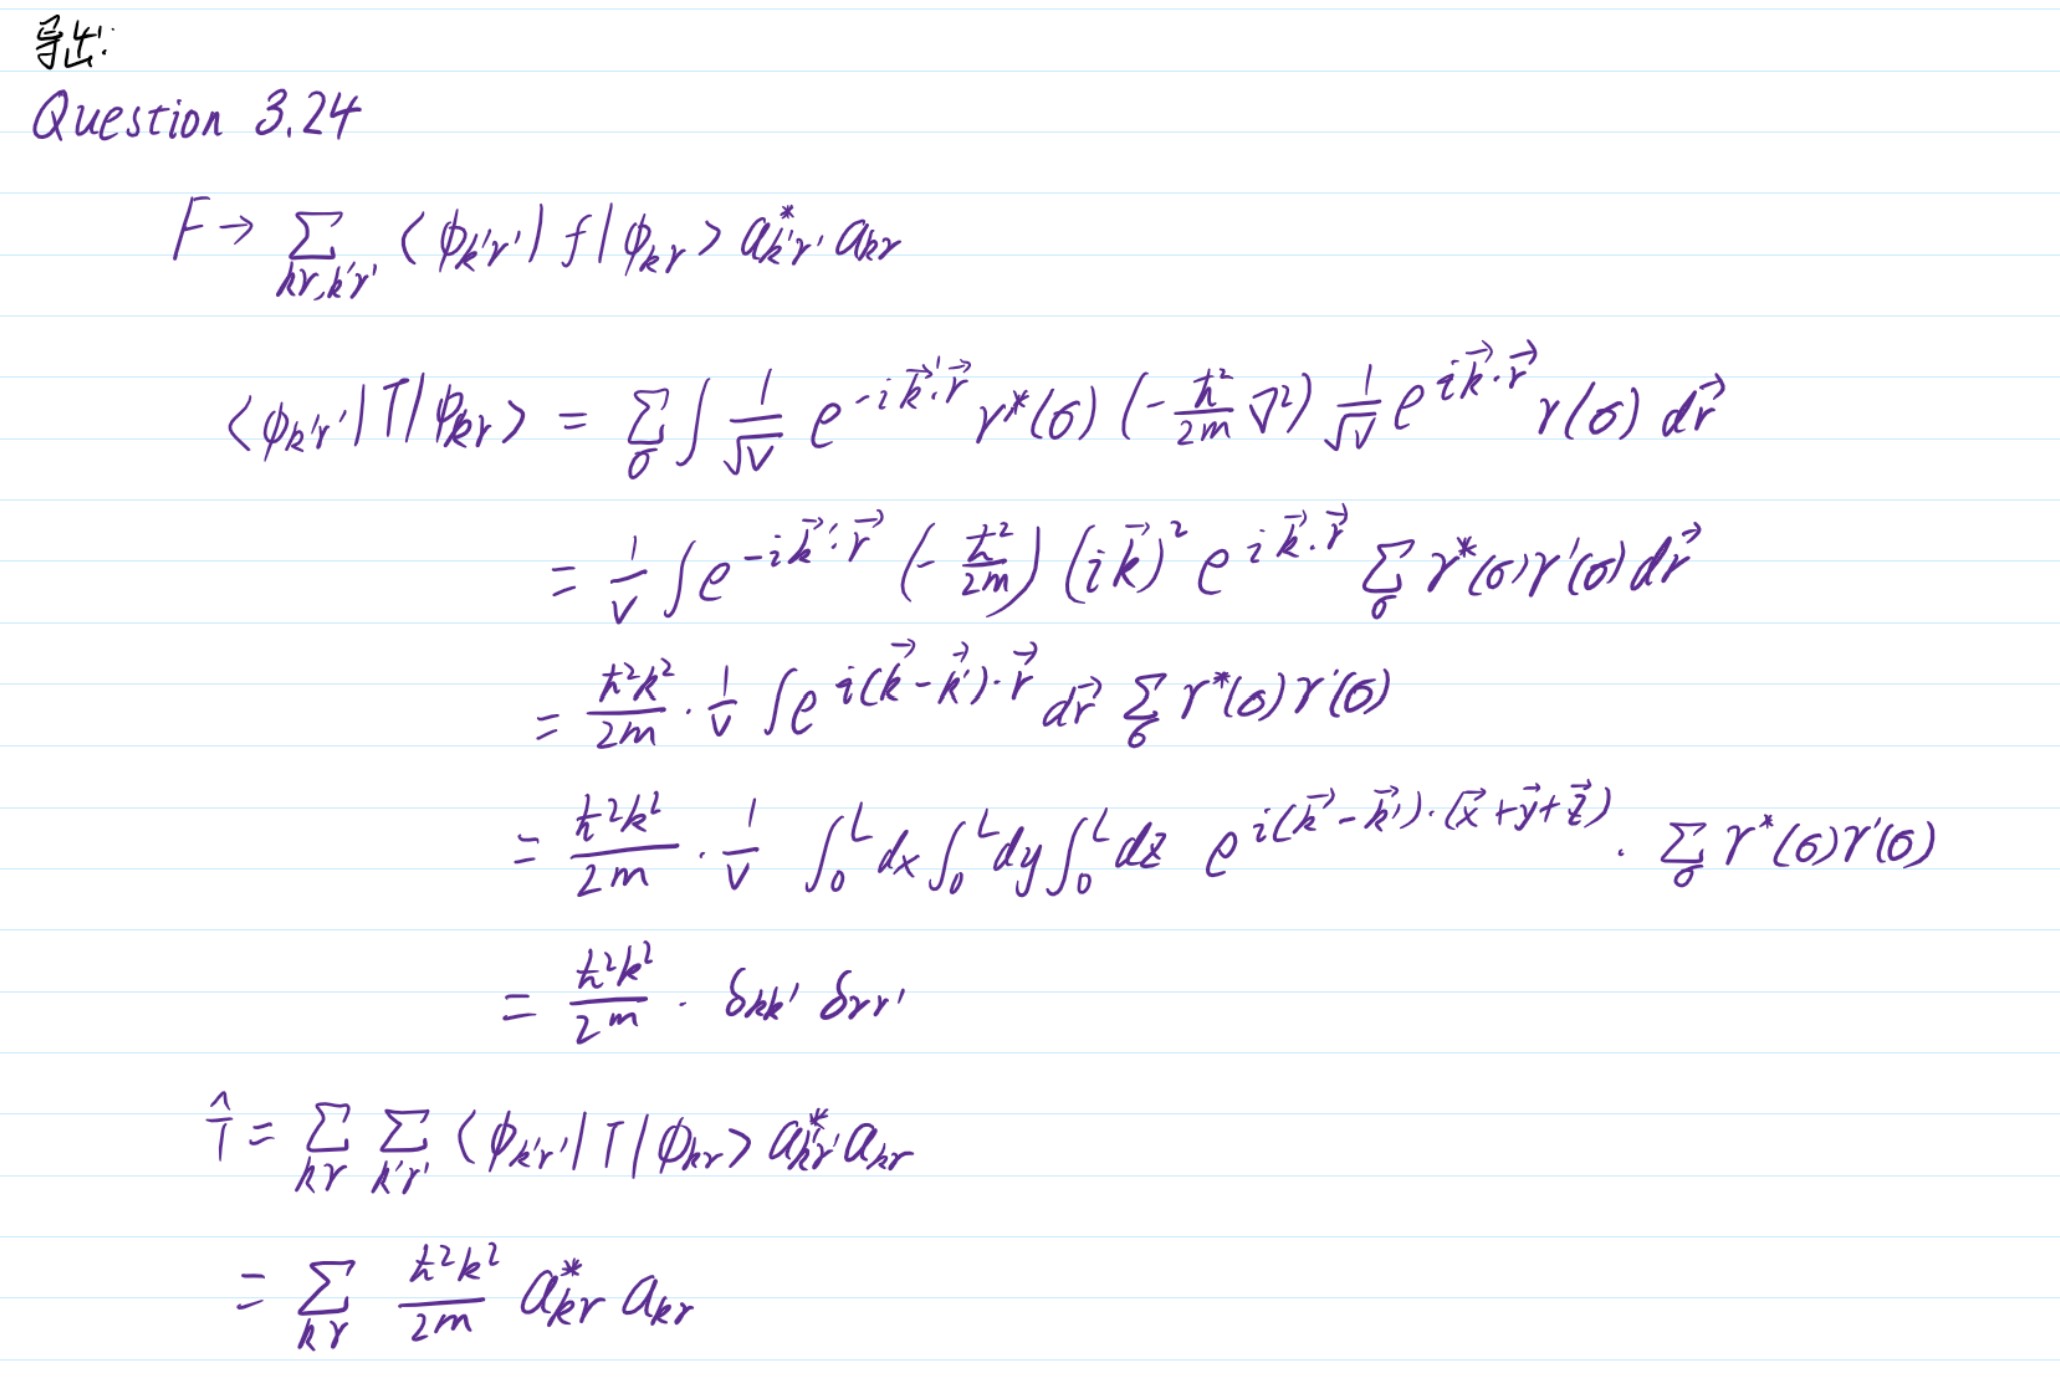 导出:
Question 3.24
F → ∑_{kγ,k'γ'} ⟨φ_{k'γ'}| f |φ_{kγ}⟩ a*_{k'γ'} a_{kγ}
⟨φ_{k'γ'}|T|φ_{kγ}⟩ = ∑_σ ∫ 1/√V e^{-i\vec{k}'·\vec{r}} γ*(σ) (-ℏ²/2m ∇²) 1/√V e^{i\vec{k}·\vec{r}} γ(σ) d\vec{r}
= 1/V ∫ e^{-i\vec{k}'·\vec{r}} (-ℏ²/2m) (i\vec{k})² e^{i\vec{k}·\vec{r}} ∑_σ γ*(σ)γ'(σ) d\vec{r}
= ℏ²k²/2m · 1/V ∫ e^{i(\vec{k}-\vec{k}')·\vec{r}} d\vec{r} ∑_σ γ*(σ)γ'(σ)
= ℏ²k²/2m · 1/V ∫_0^L dx ∫_0^L dy ∫_0^L dz e^{i(\vec{k}-\vec{k}')·(\vec{x}+\vec{y}+\vec{z})} · ∑_σ γ*(σ)γ'(σ)
= ℏ²k²/2m · δ_{kk'} δ_{γγ'}
\hat{T} = ∑_{kγ} ∑_{k'γ'} ⟨φ_{k'γ'}|T|φ_{kγ}⟩ a*_{k'γ'} a_{kγ}
= ∑_{kγ} ℏ²k²/2m a*_{kγ} a_{kγ}